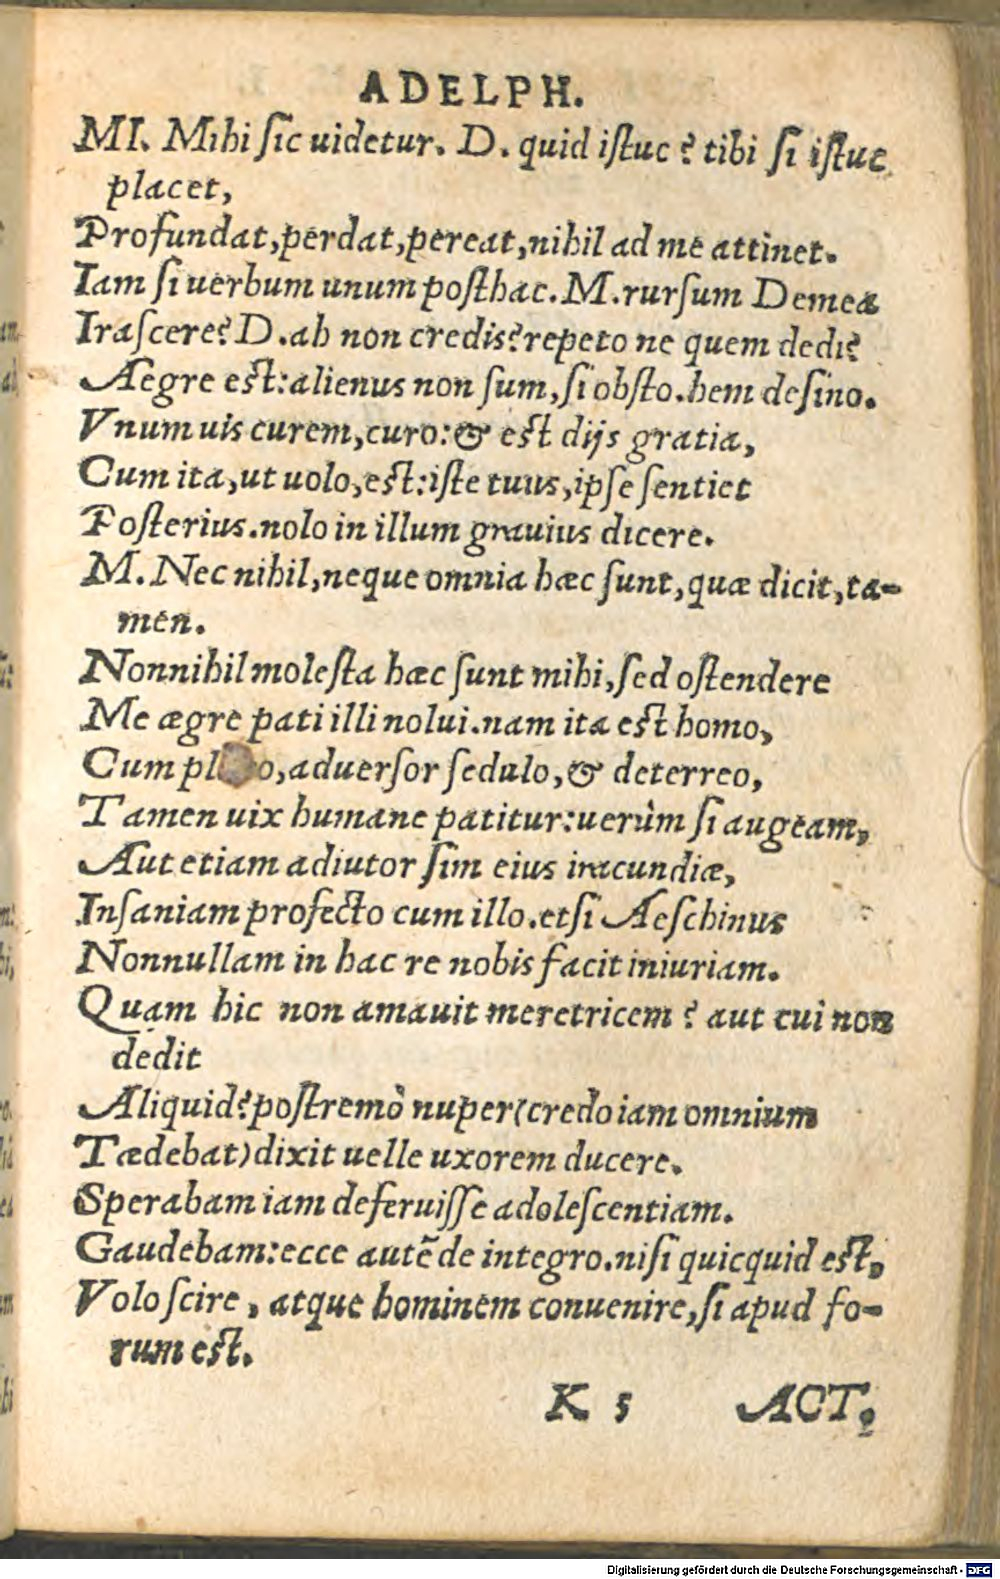 ADELPH.
MI. Mihi ſic uidetur. D. quid iſtuc? tibi ſi iſtuc
placet,
Profundat, perdat, pereat, nihil ad me attinet.
Iam ſi uerbum unum poſthac. M. rurſum Demea
Iraſcere? D. ah non credis? repeto ne quem dedi?
Aegre eſt: alienus non ſum, ſi obſto. hem deſino.
Vnum uis curem, curo: & eſt dijs gratia,
Cum ita, ut uolo, eſt: iſte tuus, ipſe ſentiet
Poſterius. nolo in illum grauius dicere.
M. Nec nihil, neque omnia hæc ſunt, quæ dicit, ta-
men.
Nonnihil moleſta hæc ſunt mihi, ſed oſtendere
Me ægre pati illi nolui. nam ita eſt homo,
Cum pl o, aduerſor ſedulo, & deterreo,
Tamen uix humane patitur: uerùm ſi augeam,
Aut etiam adiutor ſim eius iracundiæ,
Inſaniam profecto cum illo. etſi Aeſchinus
Nonnullam in hac re nobis facit iniuriam.
Quam hic non amauit meretricem? aut cui non
dedit
Aliquid? poſtremò nuper (credo iam omnium
Tædebat) dixit uelle uxorem ducere.
Sperabam iam deferuiſſe adoleſcentiam.
Gaudebam: ecce autē de integro. niſi quicquid eſt,
Volo ſcire, atque hominem conuenire, ſi apud fo-
rum eſt.
K 5 ACT.
Digitalisierung gefördert durch die Deutsche Forschungsgemeinschaft - DFG